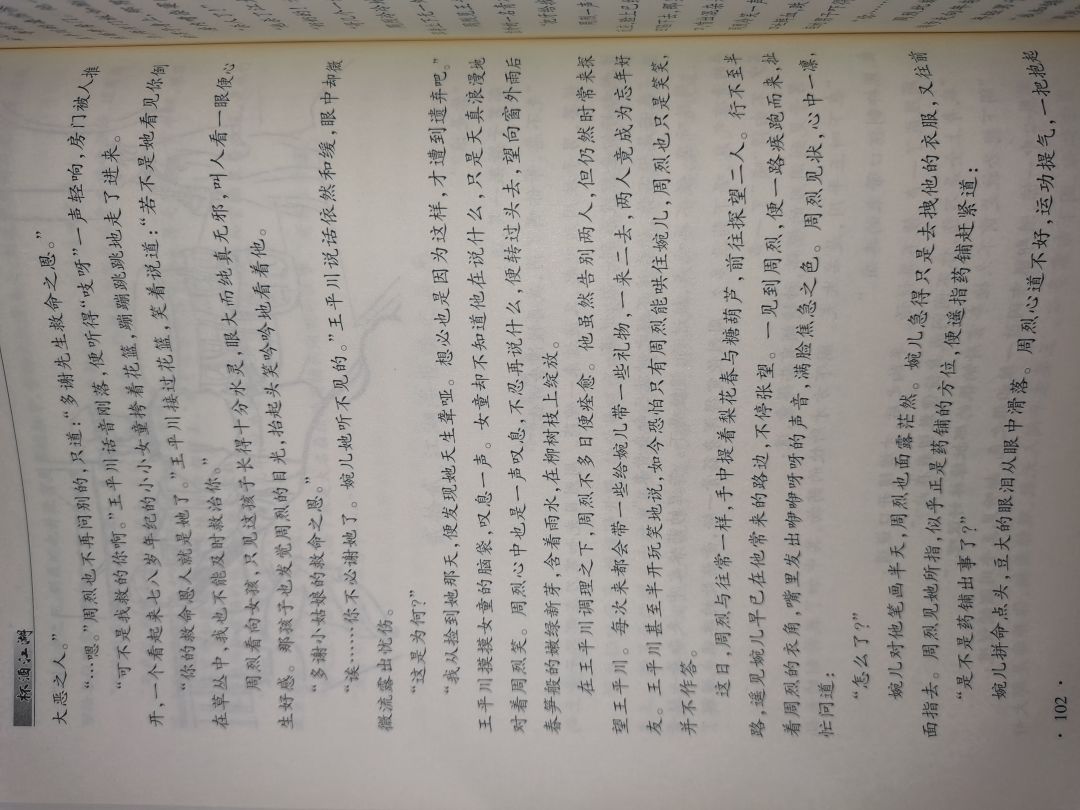 杯酒江湖
大恶之人。”
“…嗯。”周烈也不再问别的，只道：“多谢先生救命之恩。”
“可不是我救的你啊。”王平川话音刚落，便听得“吱呀”一声轻响，房门被人推
开，一个看起来七八岁年纪的小小女童挎着花篮，蹦蹦跳跳地走了进来。
“你的救命恩人就是她了。”王平川接过花篮，笑着说道：“若不是她看见你倒
在草丛中，我也不能及时救治你。”
周烈看向女孩，只见这孩子长得十分水灵，眼大而纯真无邪，叫人看一眼便心
生好感。那孩子也发觉周烈的目光，抬起头笑吟吟地看着他。
“多谢小姑娘的救命之恩。”
“诶……你不必谢她了。婉儿她听不见的。”王平川说话依然和缓，眼中却微
微流露出忧伤。
“这是为何？”
“我从捡到她那天，便发现她天生聋哑。想必也是因为这样，才遭到遗弃吧。”
王平川摸摸女童的脑袋，叹息一声。女童却不知道他在说什么，只是天真浪漫地
对着周烈笑。周烈心中也是一声叹息，不忍再说什么，便转过头去，望向窗外雨后
春笋般的嫩绿新芽，含着雨水，在柳树枝上绽放。
在王平川调理之下，周烈不多日便痊愈。他虽然告别两人，但仍然时常来探
望王平川。每次来都会带一些给婉儿带一些礼物，一来二去，两人竟成为忘年好
友。王平川甚至半开玩笑地说，如今恐怕只有周烈能哄住婉儿，周烈也只是笑笑，
并不作答。
这日，周烈与往常一样，手中提着梨花春与糖葫芦，前往探望二人。行不至半
路，遥见婉儿早已在他常来的路边，不停张望。一见到周烈，便一路疾跑而来，扯
着周烈的衣角，嘴里发出咿咿呀呀的声音，满脸焦急之色。周烈见状，心中一凛，
忙问道：
“怎么了？”
婉儿对他笔画半天，周烈也面露茫然。婉儿急得只是去拽他的衣服，又往前
面指去。周烈见她所指，似乎正是药铺的方位，便遥指药铺赶紧道：
“是不是药铺出事了？”
婉儿拼命点头，豆大的眼泪从眼中滑落。周烈心道不好，运功提气，一把抱起
· 102 ·